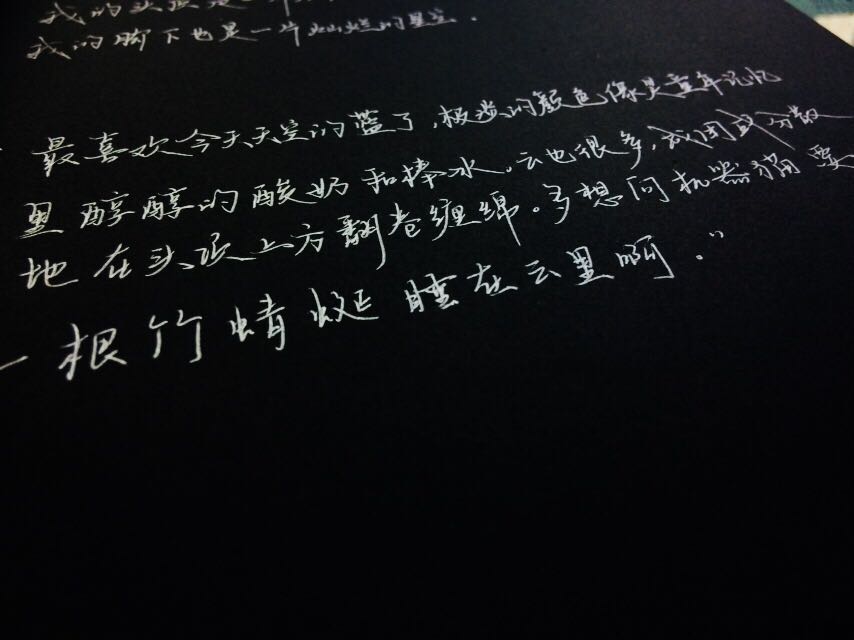 我的头顶是一
我的脚下也是一片灿烂的星空.
最喜欢今天天空的蓝了,极淡的颜色像是童年记忆
里醇醇的酸奶和棒冰.云也很多,成团或分散
地在头顶上方翻卷缠绵.多想问机器猫要
一根竹蜻蜓睡在云里啊."